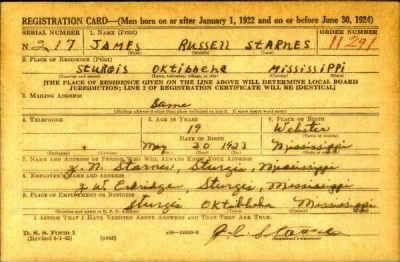 REGISTRATION CARD—(Men born on or after January 1, 1922 and on or before June 30, 1924)
SERIAL NUMBER 1. NAME (Print) ORDER NUMBER
N 217 JAMES RUSSELL STARNES 11291
(First) (Middle) (Last)
2. PLACE OF RESIDENCE (Print)
STURGIS OKTIBBEHA MISSISSIPPI
(Town, township, village, or city) (County) (State)
[THE PLACE OF RESIDENCE GIVEN ON THE LINE ABOVE WILL DETERMINE LOCAL BOARD
JURISDICTION; LINE 2 OF REGISTRATION CERTIFICATE WILL BE IDENTICAL]
3. MAILING ADDRESS
Same
[Mailing address if other than place indicated on line 2. If same insert word same]
4. TELEPHONE 5. AGE IN YEARS 6. PLACE OF BIRTH
19 Webster
DATE OF BIRTH (Town or county)
May 30 1923 Mississippi
(Mo.) (Day) (Yr.) (State or country)
7. NAME AND ADDRESS OF PERSON WHO WILL ALWAYS KNOW YOUR ADDRESS
M. Starnes, Sturgis, Mississippi
8. EMPLOYER'S NAME AND ADDRESS
J. W. Eskridge, Sturgis, Mississippi
9. PLACE OF EMPLOYMENT OR BUSINESS
Sturgis Oktibbeha Mississippi
(Number and street or R. F. D. number) (Town) (County) (State)
I AFFIRM THAT I HAVE VERIFIED ABOVE ANSWERS AND THAT THEY ARE TRUE.
D. S. S. Form 1
(Revised 6-1-42) (over)